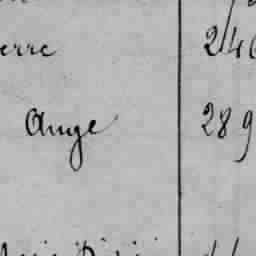 erre 246
Ange 289